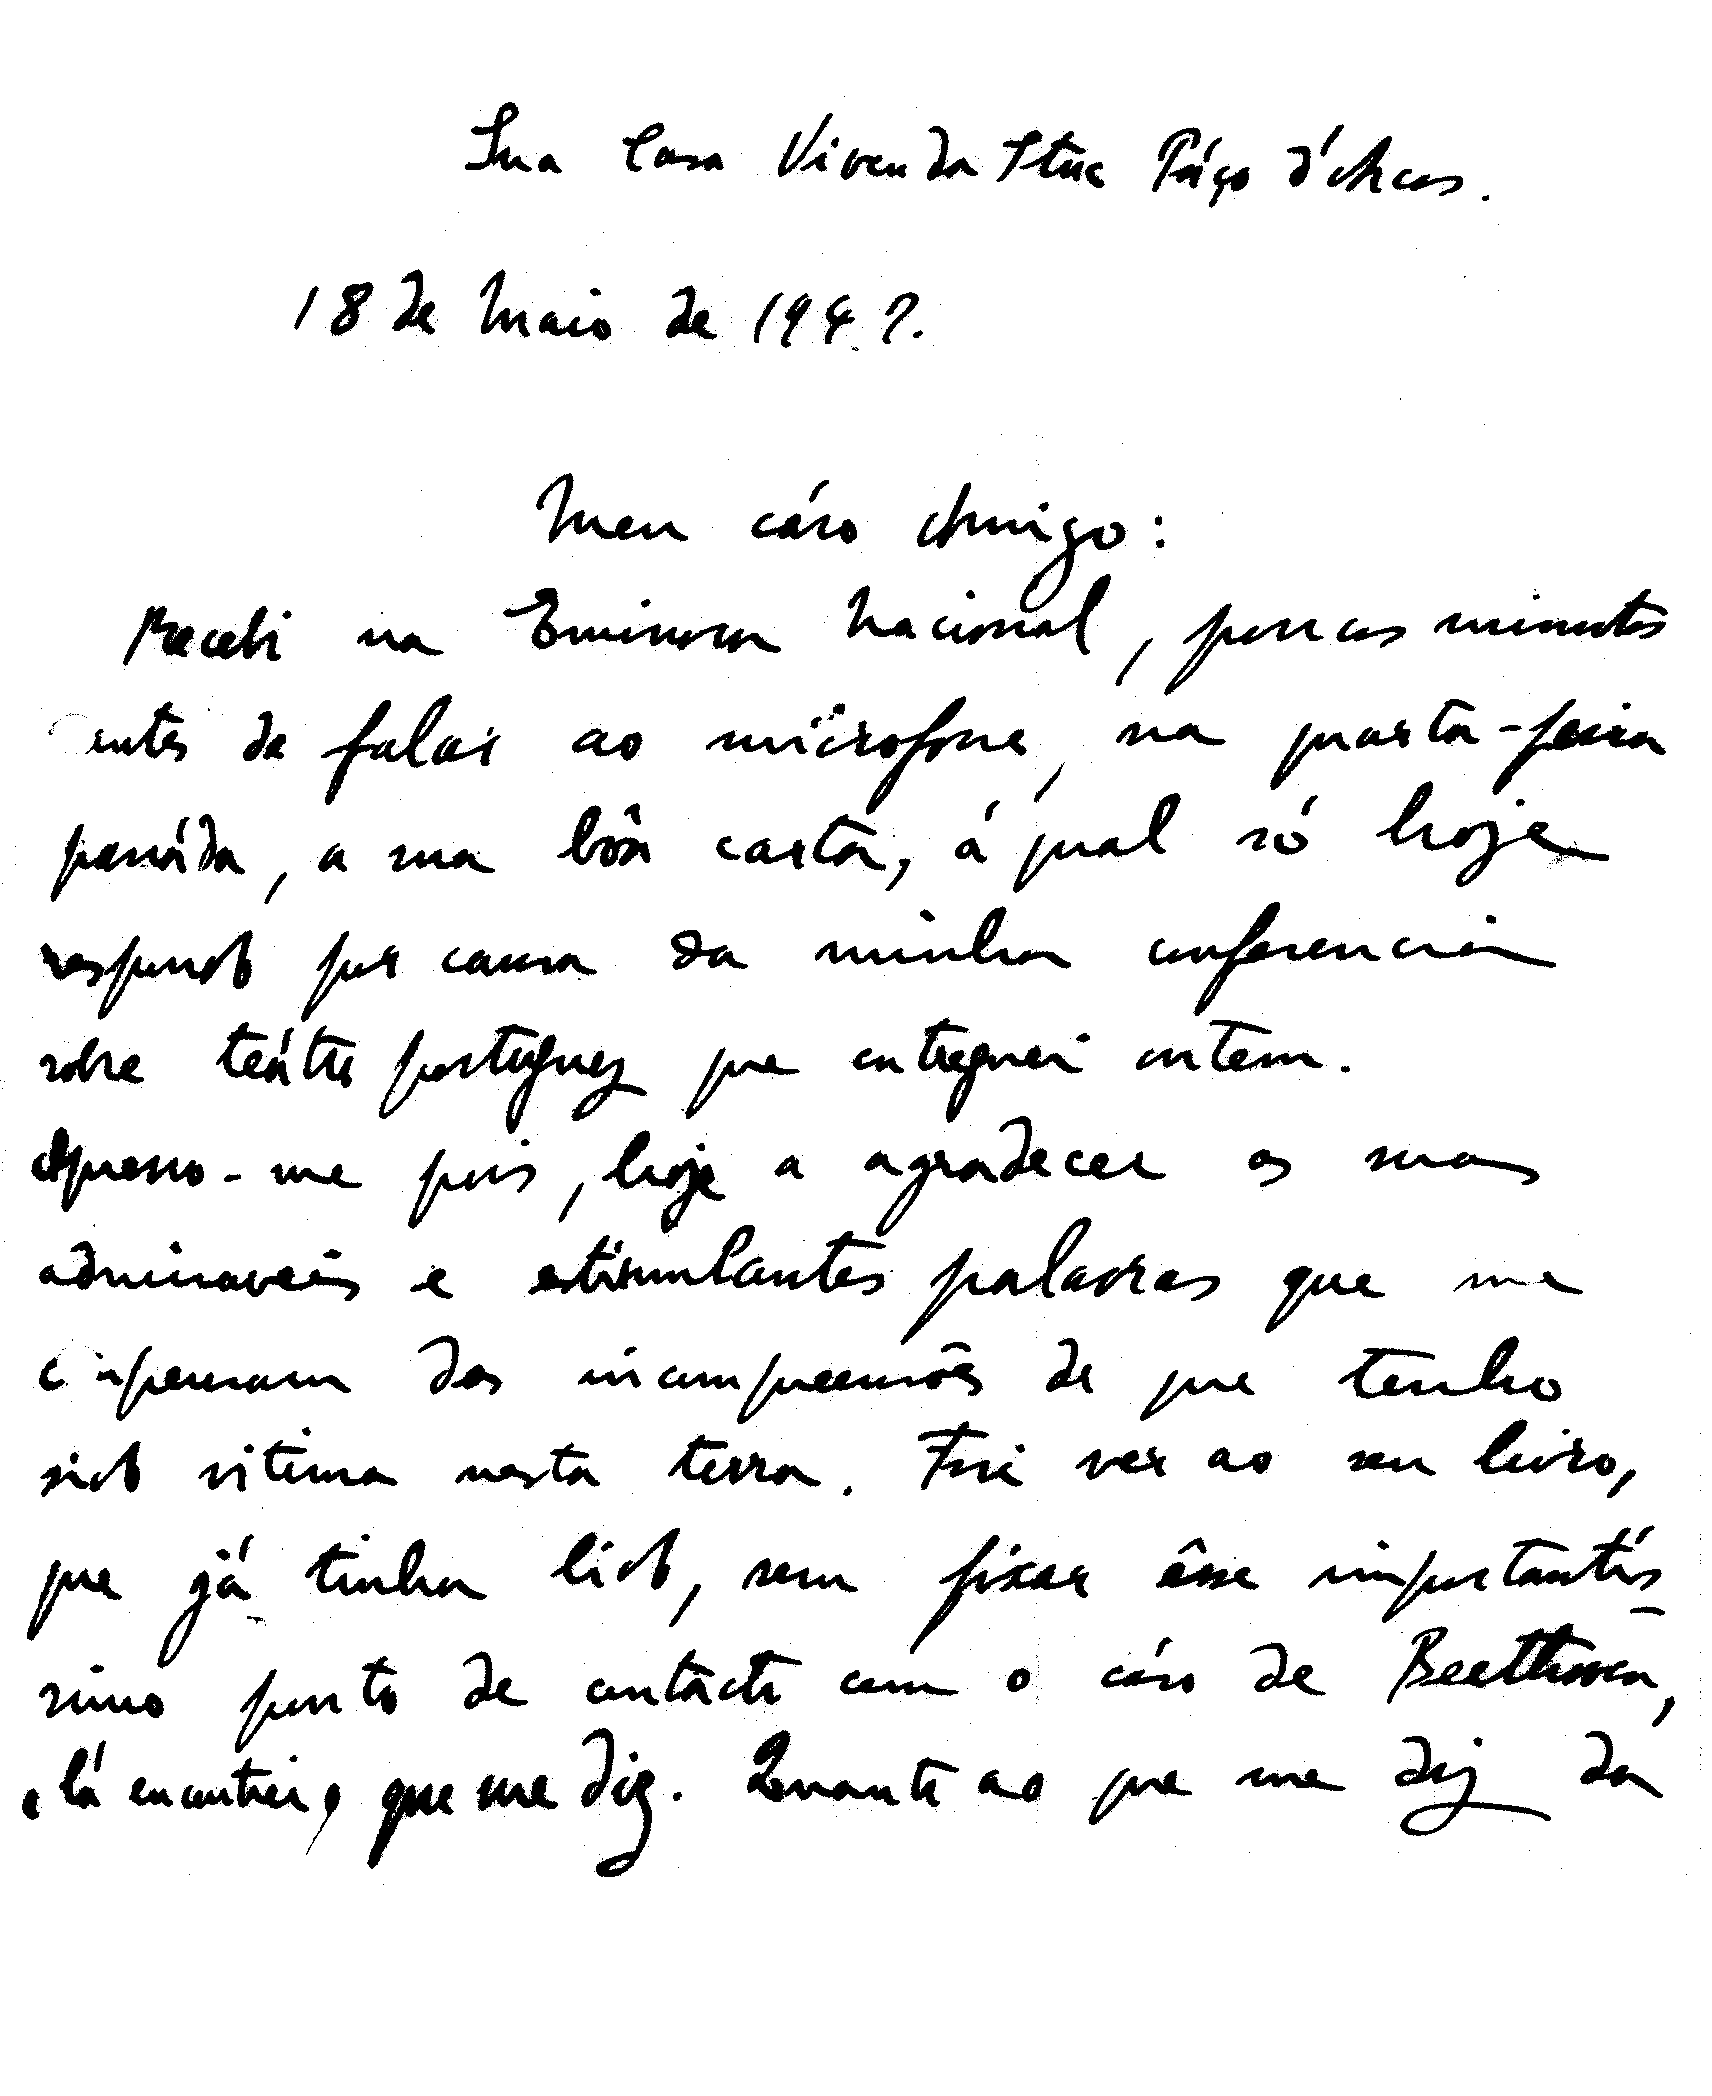 Sua Casa Vivenda Páço d'Arcos.
18 de Maio de 1947.
Meu cáro Amigo:
Recebi na Emissora Nacional, poucos minutos
antes de falar ao microfone, na quarta-feira
passáda, a sua bôa carta, á qual só hoje
respondo por causa da minha conferencia
sobre teátro portuguez que entreguei ontem.
Apresso-me pois, hoje a agradecer as suas
admiraveis e estimulantes palavras que me
das incompreensões de que tenho
sido vitima nesta terra. Fui ver ao seu livro,
que já tinha lido, sem fixar êsse importantis
simo ponto de contácto com o cáso de Beethoven,
e lá encontrei o que me diz. Quanto ao que me diz da